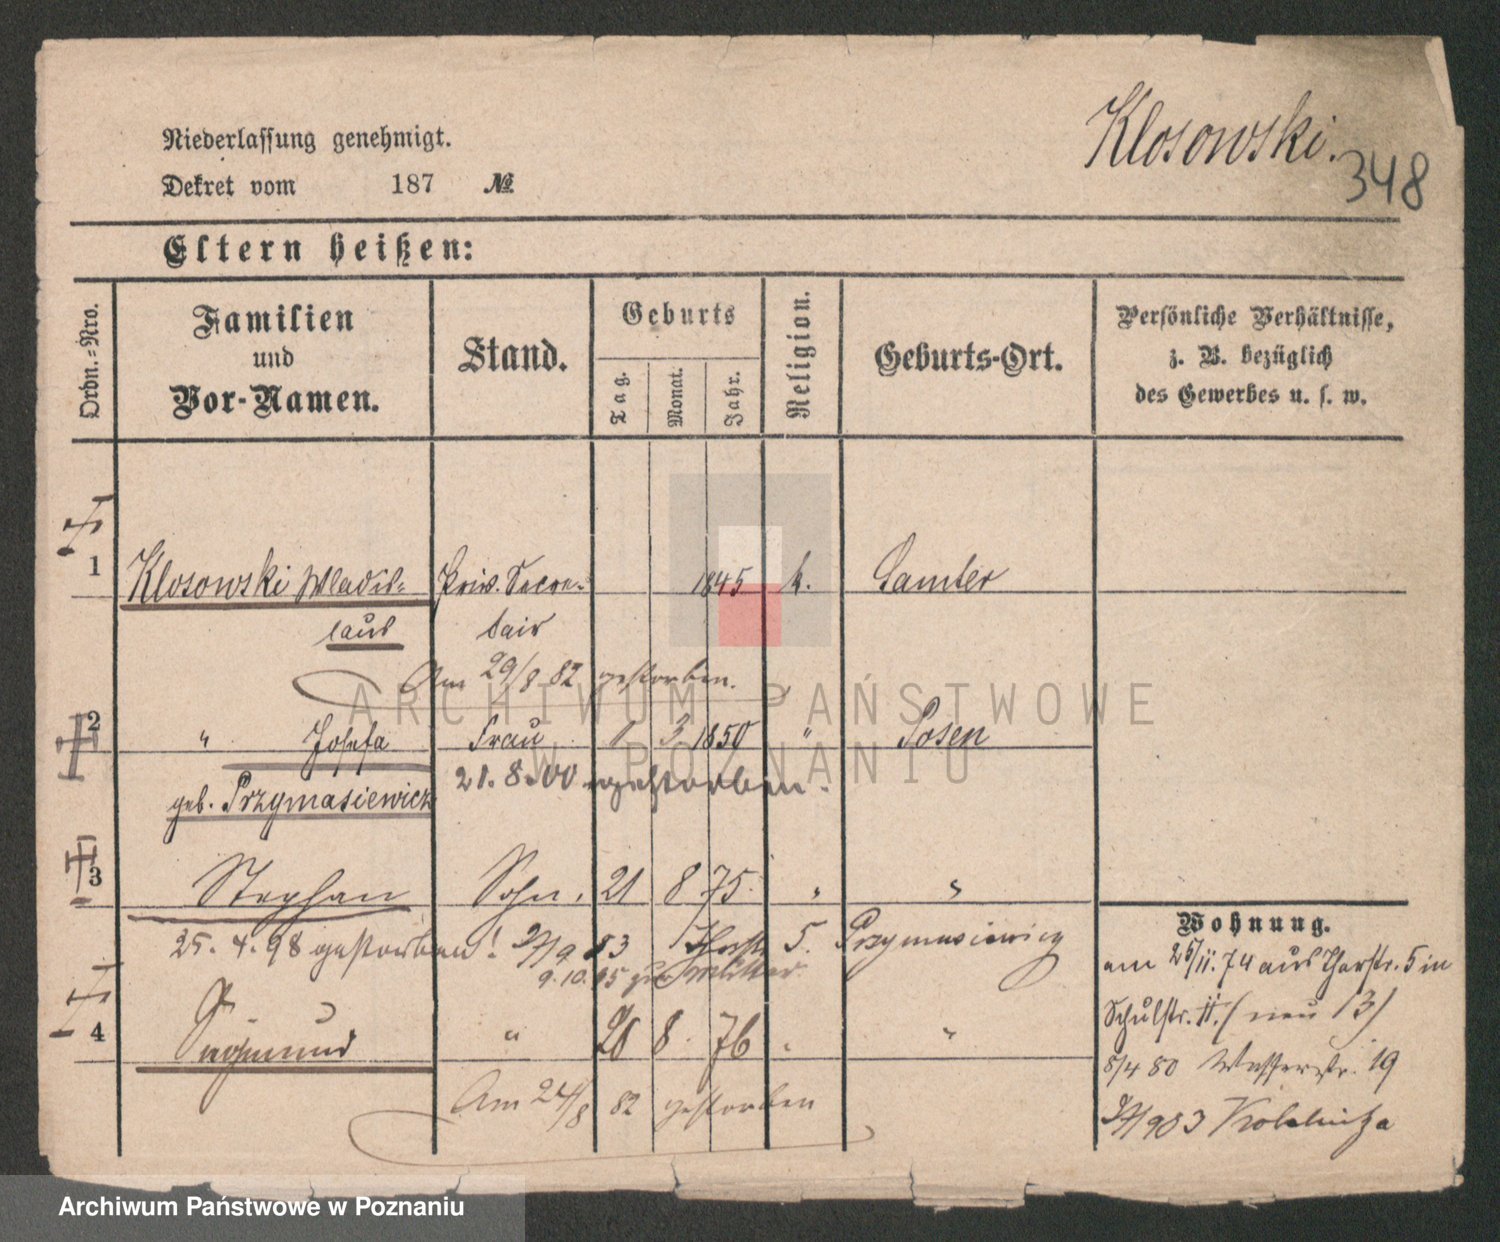 Klosowski.
348
Niederlassung genehmigt.
Dekret vom 187 №
Eltern heißen:
Ordn.=Nro.
Familien und Vor-Namen.
Stand.
Geburts
Tag.
Monat.
Jahr.
Religion.
Geburts-Ort.
Persönliche Verhältnisse,
z. B. bezüglich
des Gewerbes u. s. w.
1 Klosowski Wladis= Priv. Secre- 1845 k. Samter
laus tair
Am 29/8 82 gestorben.
2 " Josefa Frau 1 3 1850 " Posen
geb. Przymasiewicz 21. 8. 00 gestorben.
3 Stephan Sohn. 21 8 75. " "
25. 4. 98 gestorben! 9 83 5. Przymusiewicz
9. 10. 95 zum Militär
4 Sigmund " 20 8. 76 " "
Am 24/8 82 gestorben
Wohnung.
am 25/11. 74 aus Thorstr. 5 in
Schulstr. 11. (neu 13)
8/4 80 Wasserstr. 19
9 83
ARCHIWUM PAŃSTWOWE
W POZNANIU
Archiwum Państwowe w Poznaniu